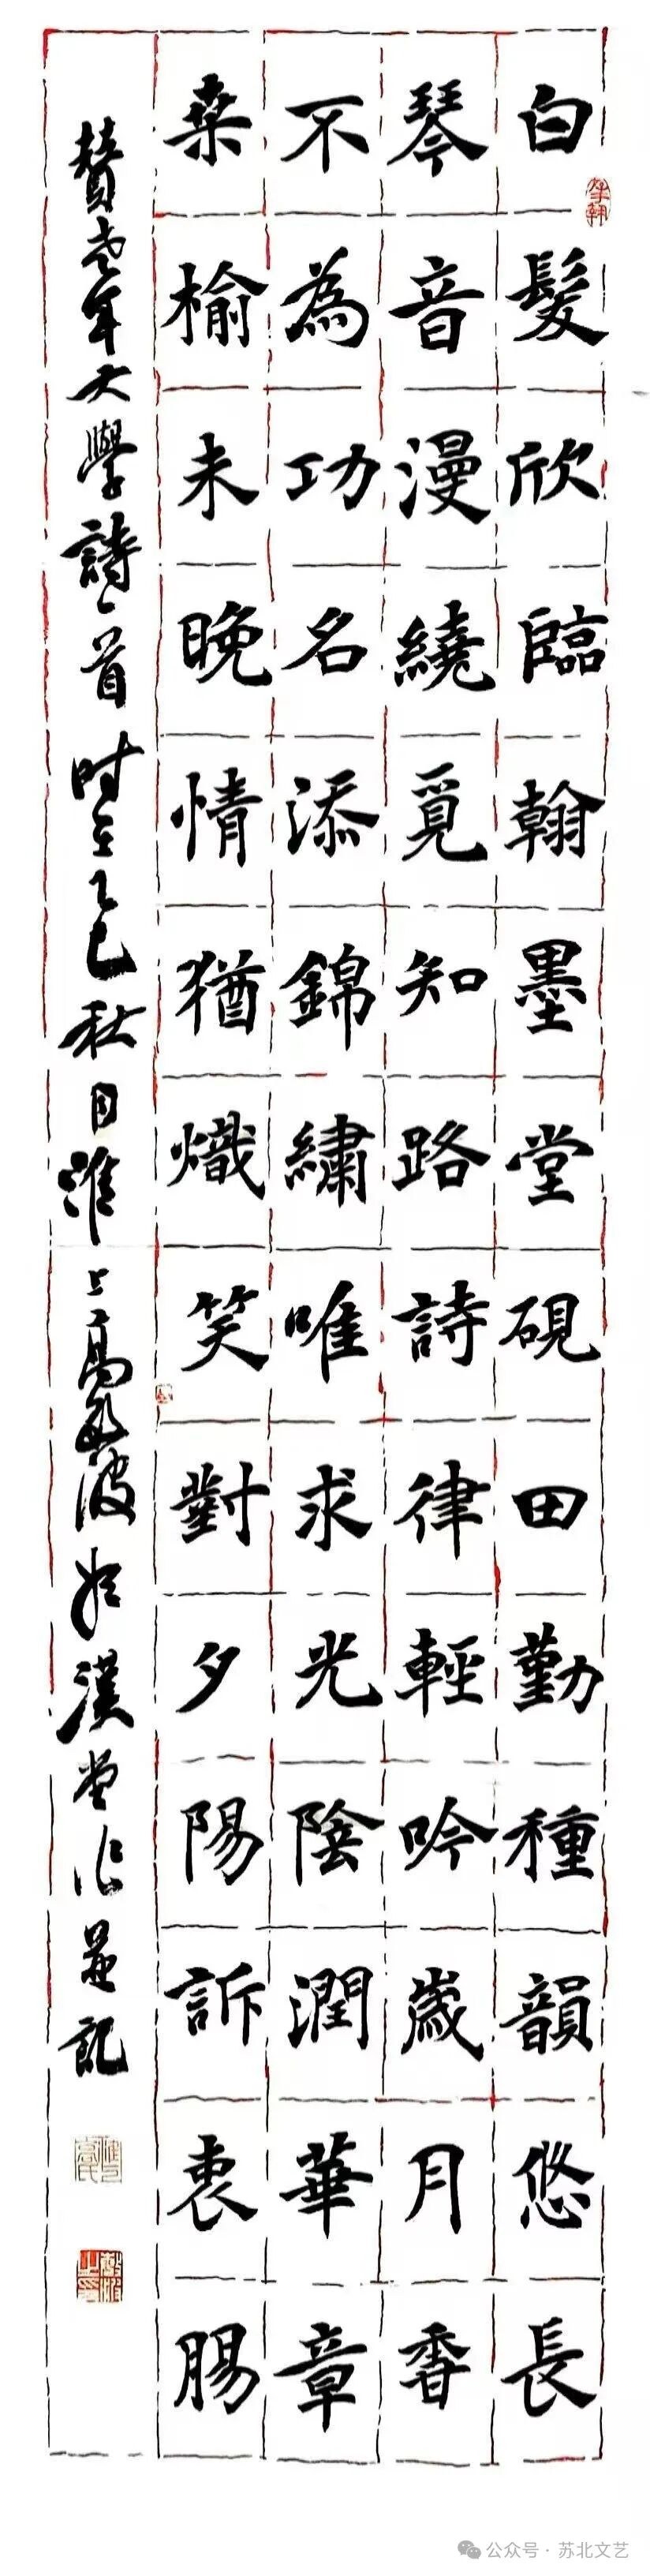 白髮欣臨翰墨堂硯田勤種韻悠長
琴音漫繞覓知路詩律輕吟歲月香
不為功名添錦繡唯求光陰潤華章
桑榆未晚情猶熾笑對夕陽訴衷腸
贊老年大學詩一首時在乙巳秋月淮上高敬波於漢堂作並記
公众号·苏北文艺